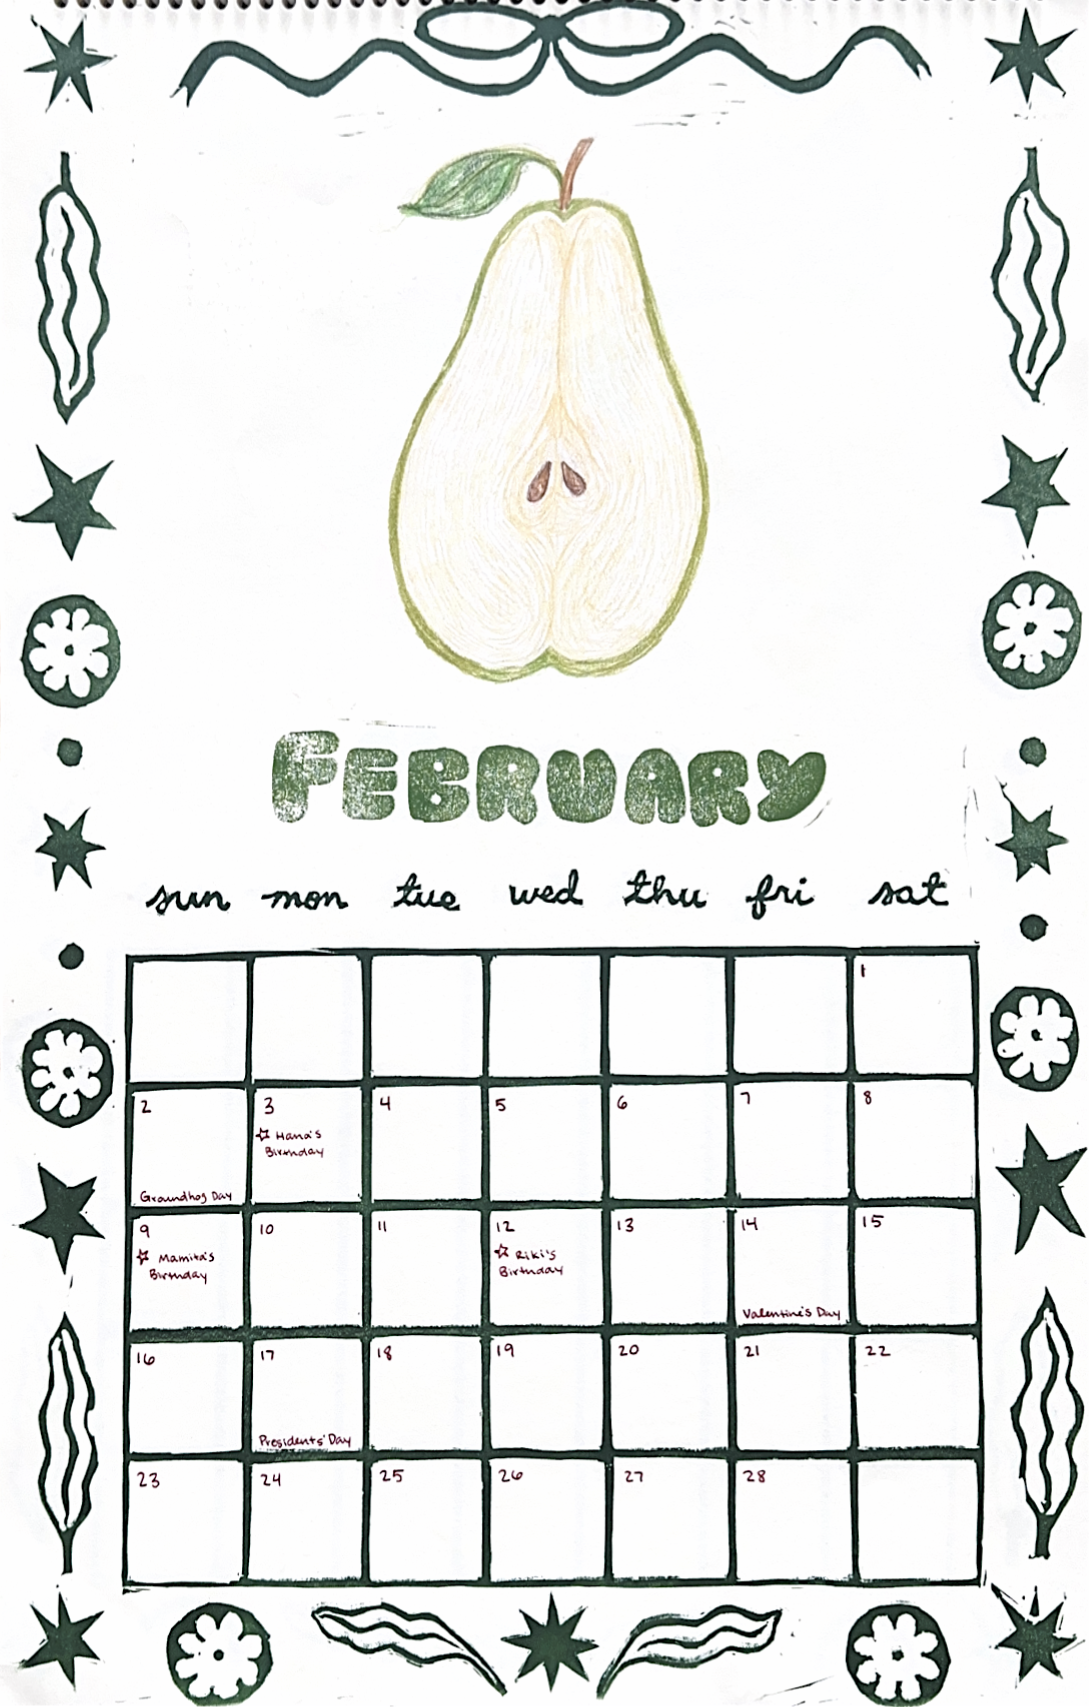 FEBRUARY
sun mon tue wed thu fri sat
1
2 3 4 5 6 7 8
☆ Hana's
Birthday
Groundhog Day
9 10 11 12 13 14 15
☆ Mamita's
Birthday
☆ Riki's
Birthday
Valentine's Day
16 17 18 19 20 21 22
Presidents' Day
23 24 25 26 27 28